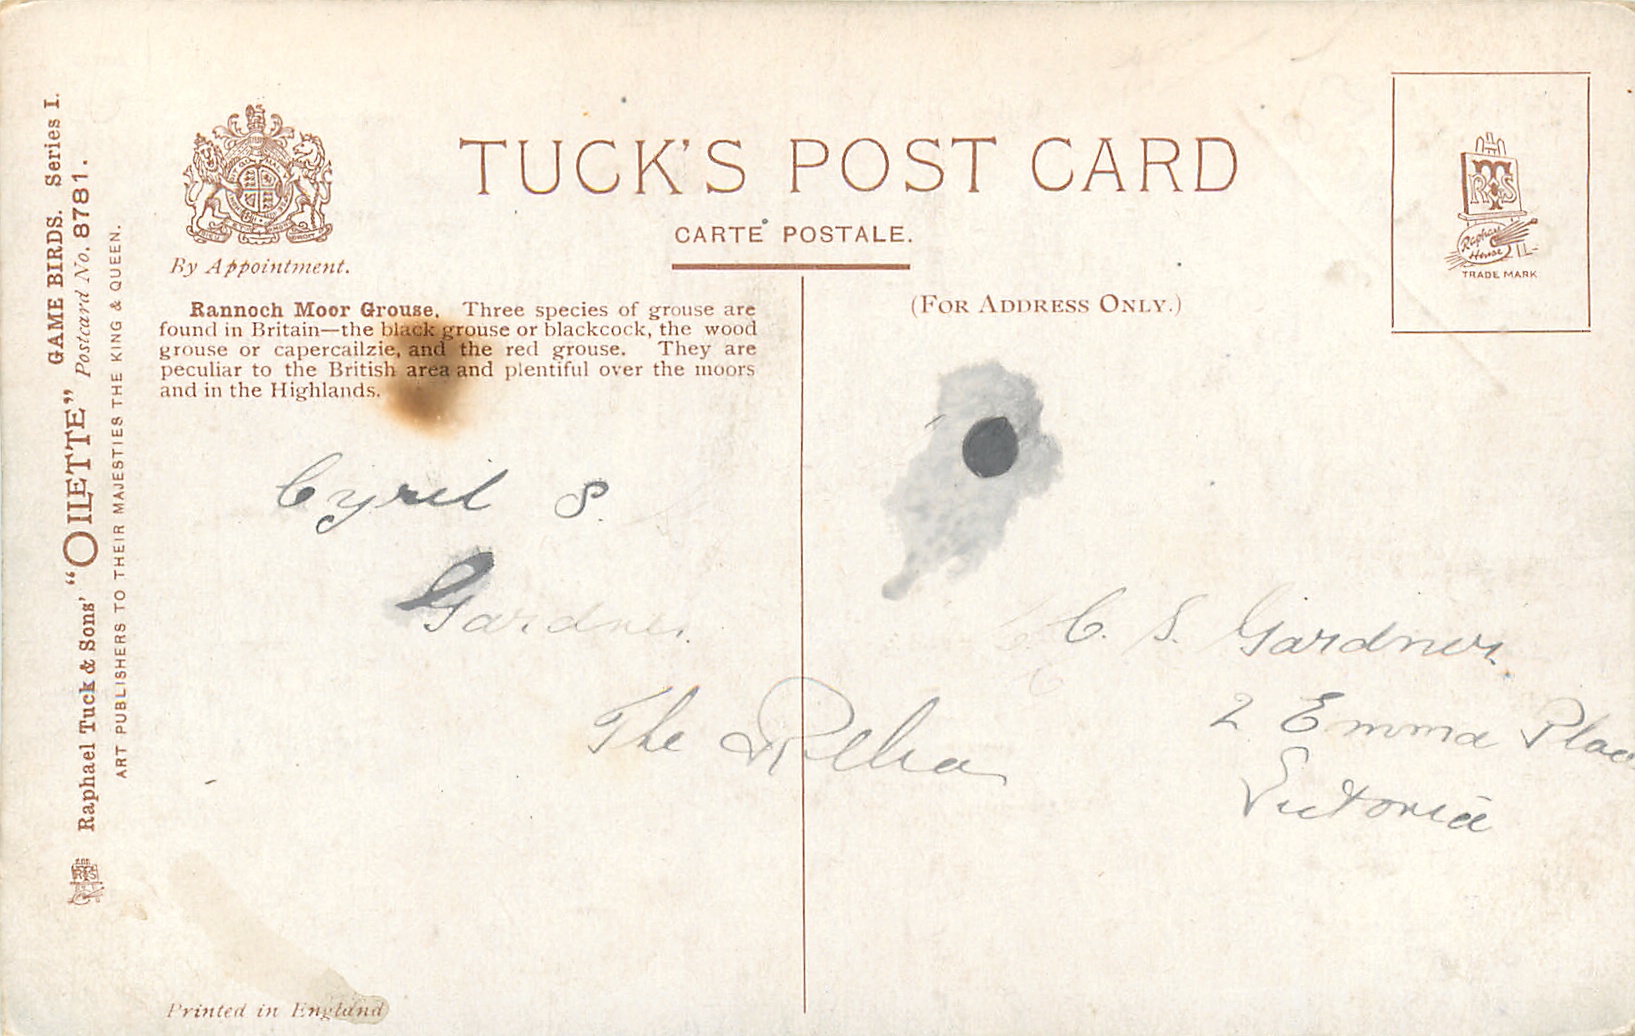 GAME BIRDS. Series I.
Raphael Tuck & Sons' "OILETTE" Postcard No. 8781.
ART PUBLISHERS TO THEIR MAJESTIES THE KING & QUEEN.
TUCK'S POST CARD
CARTE POSTALE.
By Appointment.
(FOR ADDRESS ONLY.)
Raphael
House
TRADE MARK
Rannoch Moor Grouse. Three species of grouse are
found in Britain—the black grouse or blackcock, the wood
grouse or capercailzie, and the red grouse. They are
peculiar to the British area and plentiful over the moors
and in the Highlands.
Cyril S.
Gardner.
The
C. S. Gardner
2 Emma Place
Victoria
Printed in England